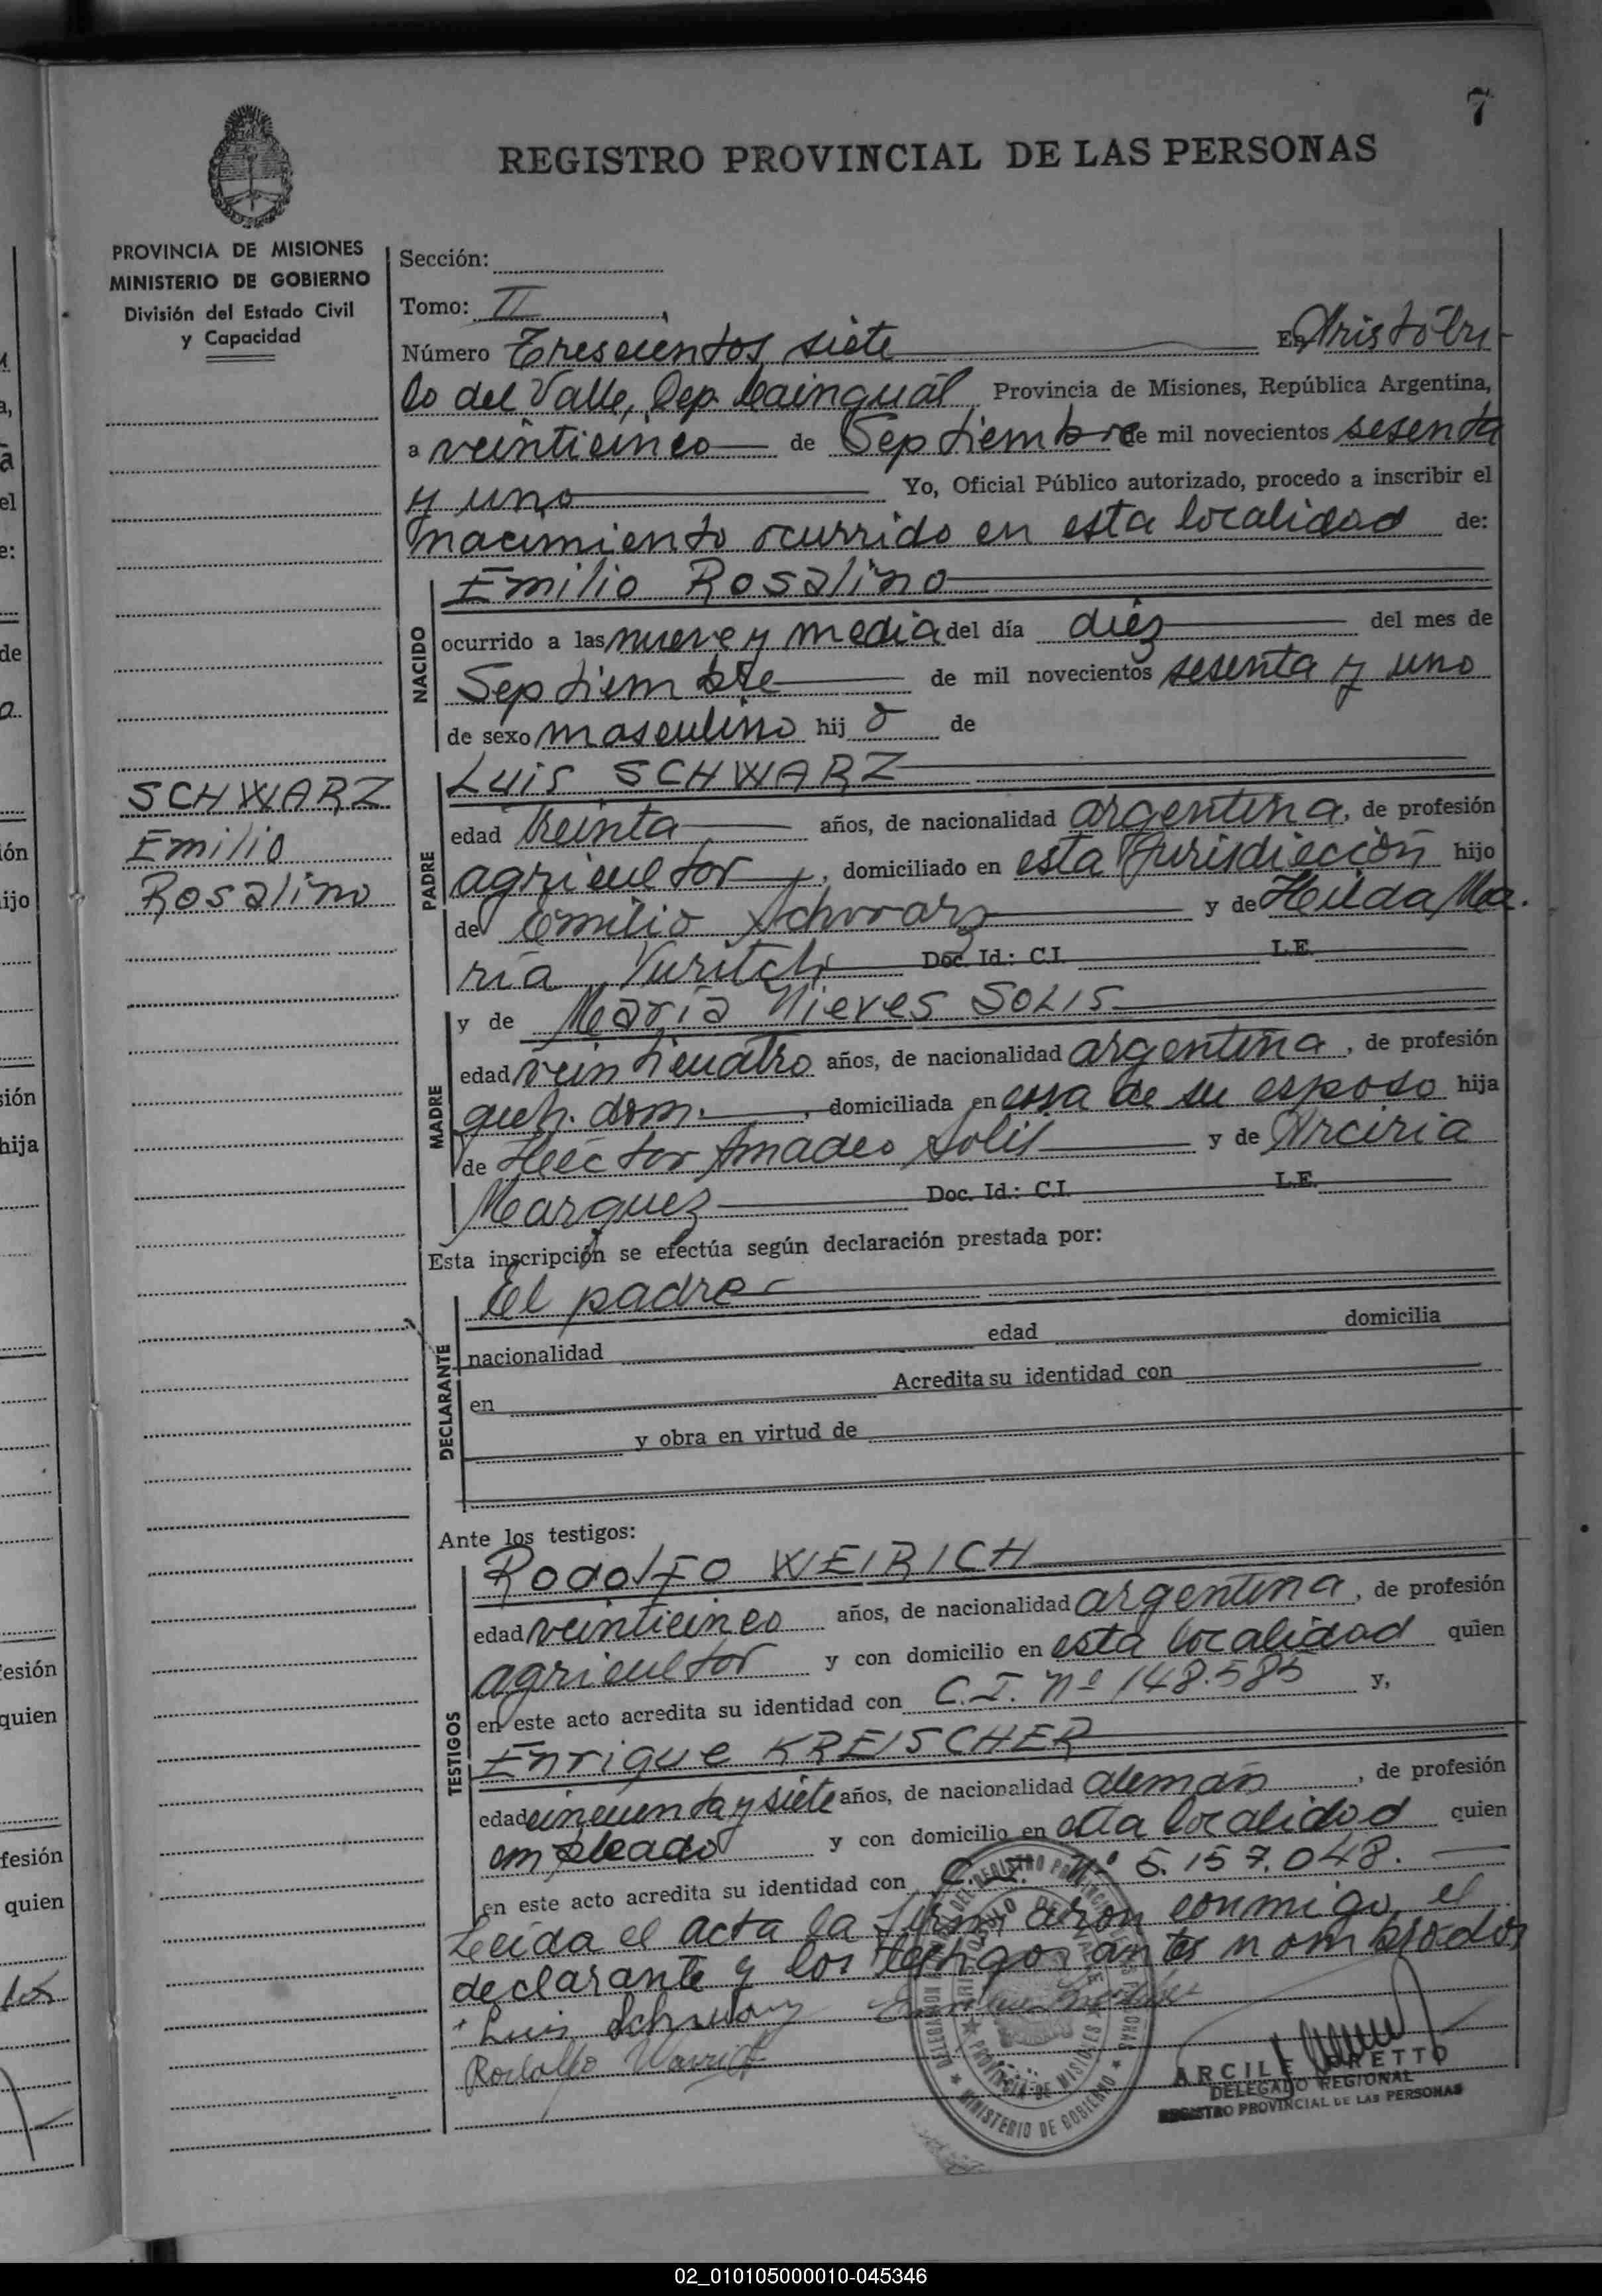 7
REGISTRO PROVINCIAL DE LAS PERSONAS
PROVINCIA DE MISIONES
MINISTERIO DE GOBIERNO
División del Estado Civil
y Capacidad
SCHWARZ
Emilio
Rosalino
Sección:
Tomo: II
Número Trescientos siete En Aristóbu
lo del Valle, Dep. Cainguás Provincia de Misiones, República Argentina,
a veinticinco de Septiembre de mil novecientos sesenta
y uno Yo, Oficial Público autorizado, procedo a inscribir el
nacimiento ocurrido en esta localidad de:
NACIDO
Emilio Rosalino
ocurrido a las nueve y media del día diez del mes de
Septiembre de mil novecientos sesenta y uno
de sexo masculino hijo de
PADRE
Luis SCHWARZ
edad treinta años, de nacionalidad argentina, de profesión
agricultor, domiciliado en esta Jurisdicción hijo
de Emilio Schwarz y de Hilda Ma.
ría Yuritch Doc. Id.: C.I. L.E.
MADRE
y de María Nieves SOLIS
edad veinticuatro años, de nacionalidad argentina, de profesión
queh. dom., domiciliada en casa de su esposo hija
de Héctor Amadeo Solis y de Arciria
Marquez Doc. Id.: C.I. L.E.
Esta inscripción se efectúa según declaración prestada por:
DECLARANTE
El padre
nacionalidad edad domicilia
en Acredita su identidad con
y obra en virtud de
Ante los testigos:
TESTIGOS
Rodolfo WEIRICH
edad veinticinco años, de nacionalidad argentina, de profesión
agricultor y con domicilio en esta localidad quien
en este acto acredita su identidad con C.I. Nº 148.585 y,
Enrique KREISCHER
edad cincuenta y siete años, de nacionalidad alemán, de profesión
empleado y con domicilio en esta localidad quien
en este acto acredita su identidad con C.I. Nº 5.157.048.
Leída el acta la firmaron conmigo, el
declarante y los testigos antes nombrados
Luis Schwarz
Rodolfo
PROVINCIA DE MISIONES
MINISTERIO DE GOBIERNO
DELEGADO REGIONAL
REGISTRO PROVINCIAL DE LAS PERSONAS
02_010105000010-045346